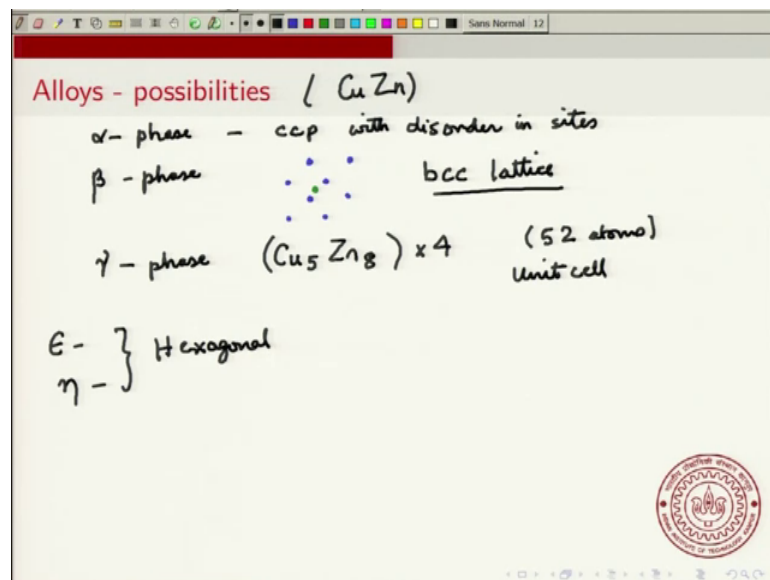 Sans Normal 12
Alloys - possibilities ( CuZn)
α- phase - ccp with disorder in sites
β - phase bcc lattice
γ - phase (Cu5 Zn8) × 4 (52 atoms)
Unit cell
ϵ - } Hexagonal
η -